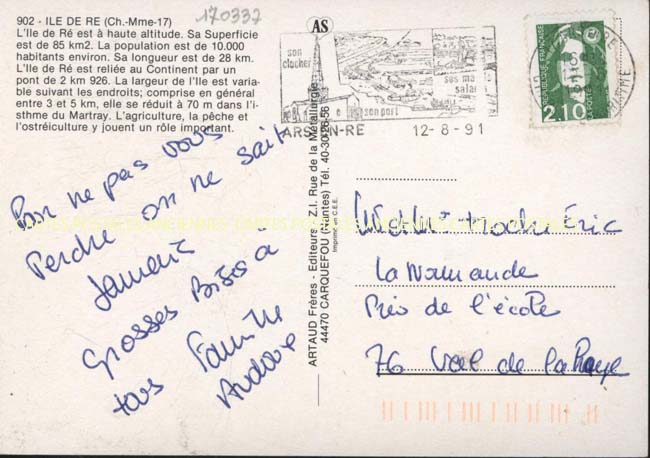 170337
902 - ILE DE RE (Ch.-Mme-17)
L'Ile de Ré est à haute altitude. Sa Superficie
est de 85 km2. La population est de 10.000
habitants environ. Sa longueur est de 28 km.
L'Ile de Ré est reliée au Continent par un
pont de 2 km 926. La largeur de l'Ile est varia-
ble suivant les endroits; comprise en général
entre 3 et 5 km, elle se réduit à 70 m dans l'i-
sthme du Martray. L'agriculture, la pêche et
l'ostréiculture y jouent un rôle important.
Pour ne pas vous
Perdre on ne sait
Jamais
Grosses Bises à
tous Famille
AS
ARTAUD Frères - Editeurs - Z.I. Rue de la Métallurgie
44470 CARQUEFOU (Nantes) Tél. 40-30-26-56
Imprimé en C.E.E.
son
clocher
ses marais
salants
son port
ARS-EN-RE
12-8-91
REPUBLIQUE FRANÇAISE
LA POSTE
2,10
Éric
La Normande
Près de l'école
76 Val de la Haye